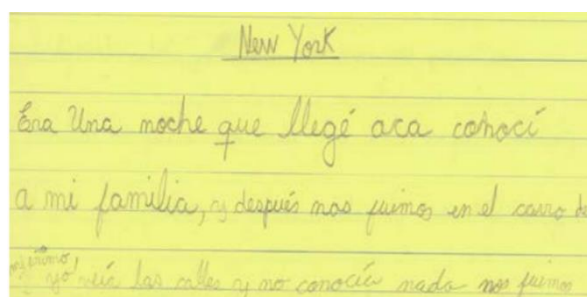 New York
Era Una noche que llegé aca conocí
a mi familia, y después nos fuimos en el carro de
mi primo
yo veía las calles y no conocía nada nos fuimos